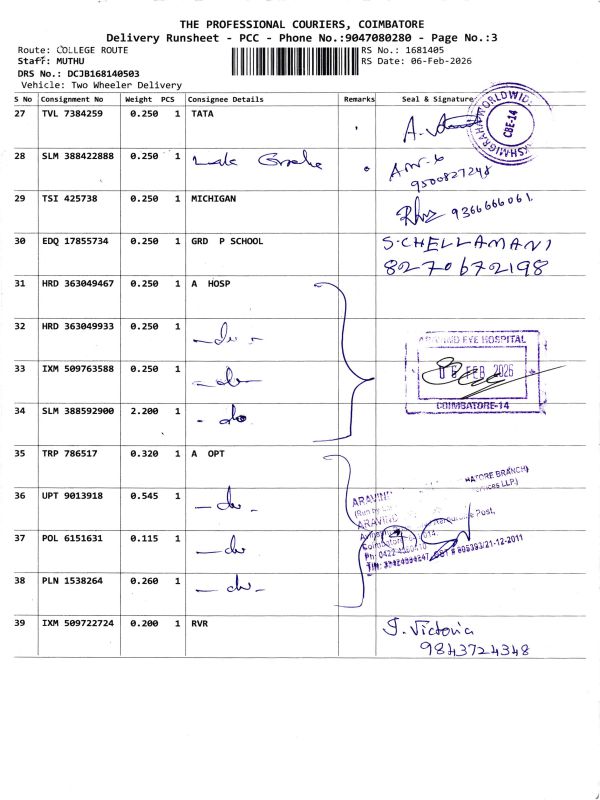 THE PROFESSIONAL COURIERS, COIMBATORE
Delivery Runsheet - PCC - Phone No.:9047080280 - Page No.:3
Route: COLLEGE ROUTE RS No.: 1681405
Staff: MUTHU RS Date: 06-Feb-2026
DRS No.: DCJB168140503
Vehicle: Two Wheeler Delivery
S No Consignment No Weight PCS Consignee Details Remarks Seal & Signature
27 TVL 7384259 0.250 1 TATA
WORLDWIDE
CBE-14
28 SLM 388422888 0.250 1
9500827248
29 TSI 425738 0.250 1 MICHIGAN
9366666061.
30 EDQ 17855734 0.250 1 GRD P SCHOOL S.CHELLAMANI
8270672198
31 HRD 363049467 0.250 1 A HOSP
32 HRD 363049933 0.250 1 - do -
EYE HOSPITAL
33 IXM 509763588 0.250 1 - do -
06 FEB 2026
34 SLM 388592900 2.200 1 - do
COIMBATORE-14
35 TRP 786517 0.320 1 A OPT
BRANCH)
LLP)
36 UPT 9013918 0.545 1 - do -
ARAVIND
Post,
37 POL 6151631 0.115 1 - do
Coimbatore
21-12-2011
38 PLN 1538264 0.260 1 - do -
39 IXM 509722724 0.200 1 RVR J. Victoria
9843724348